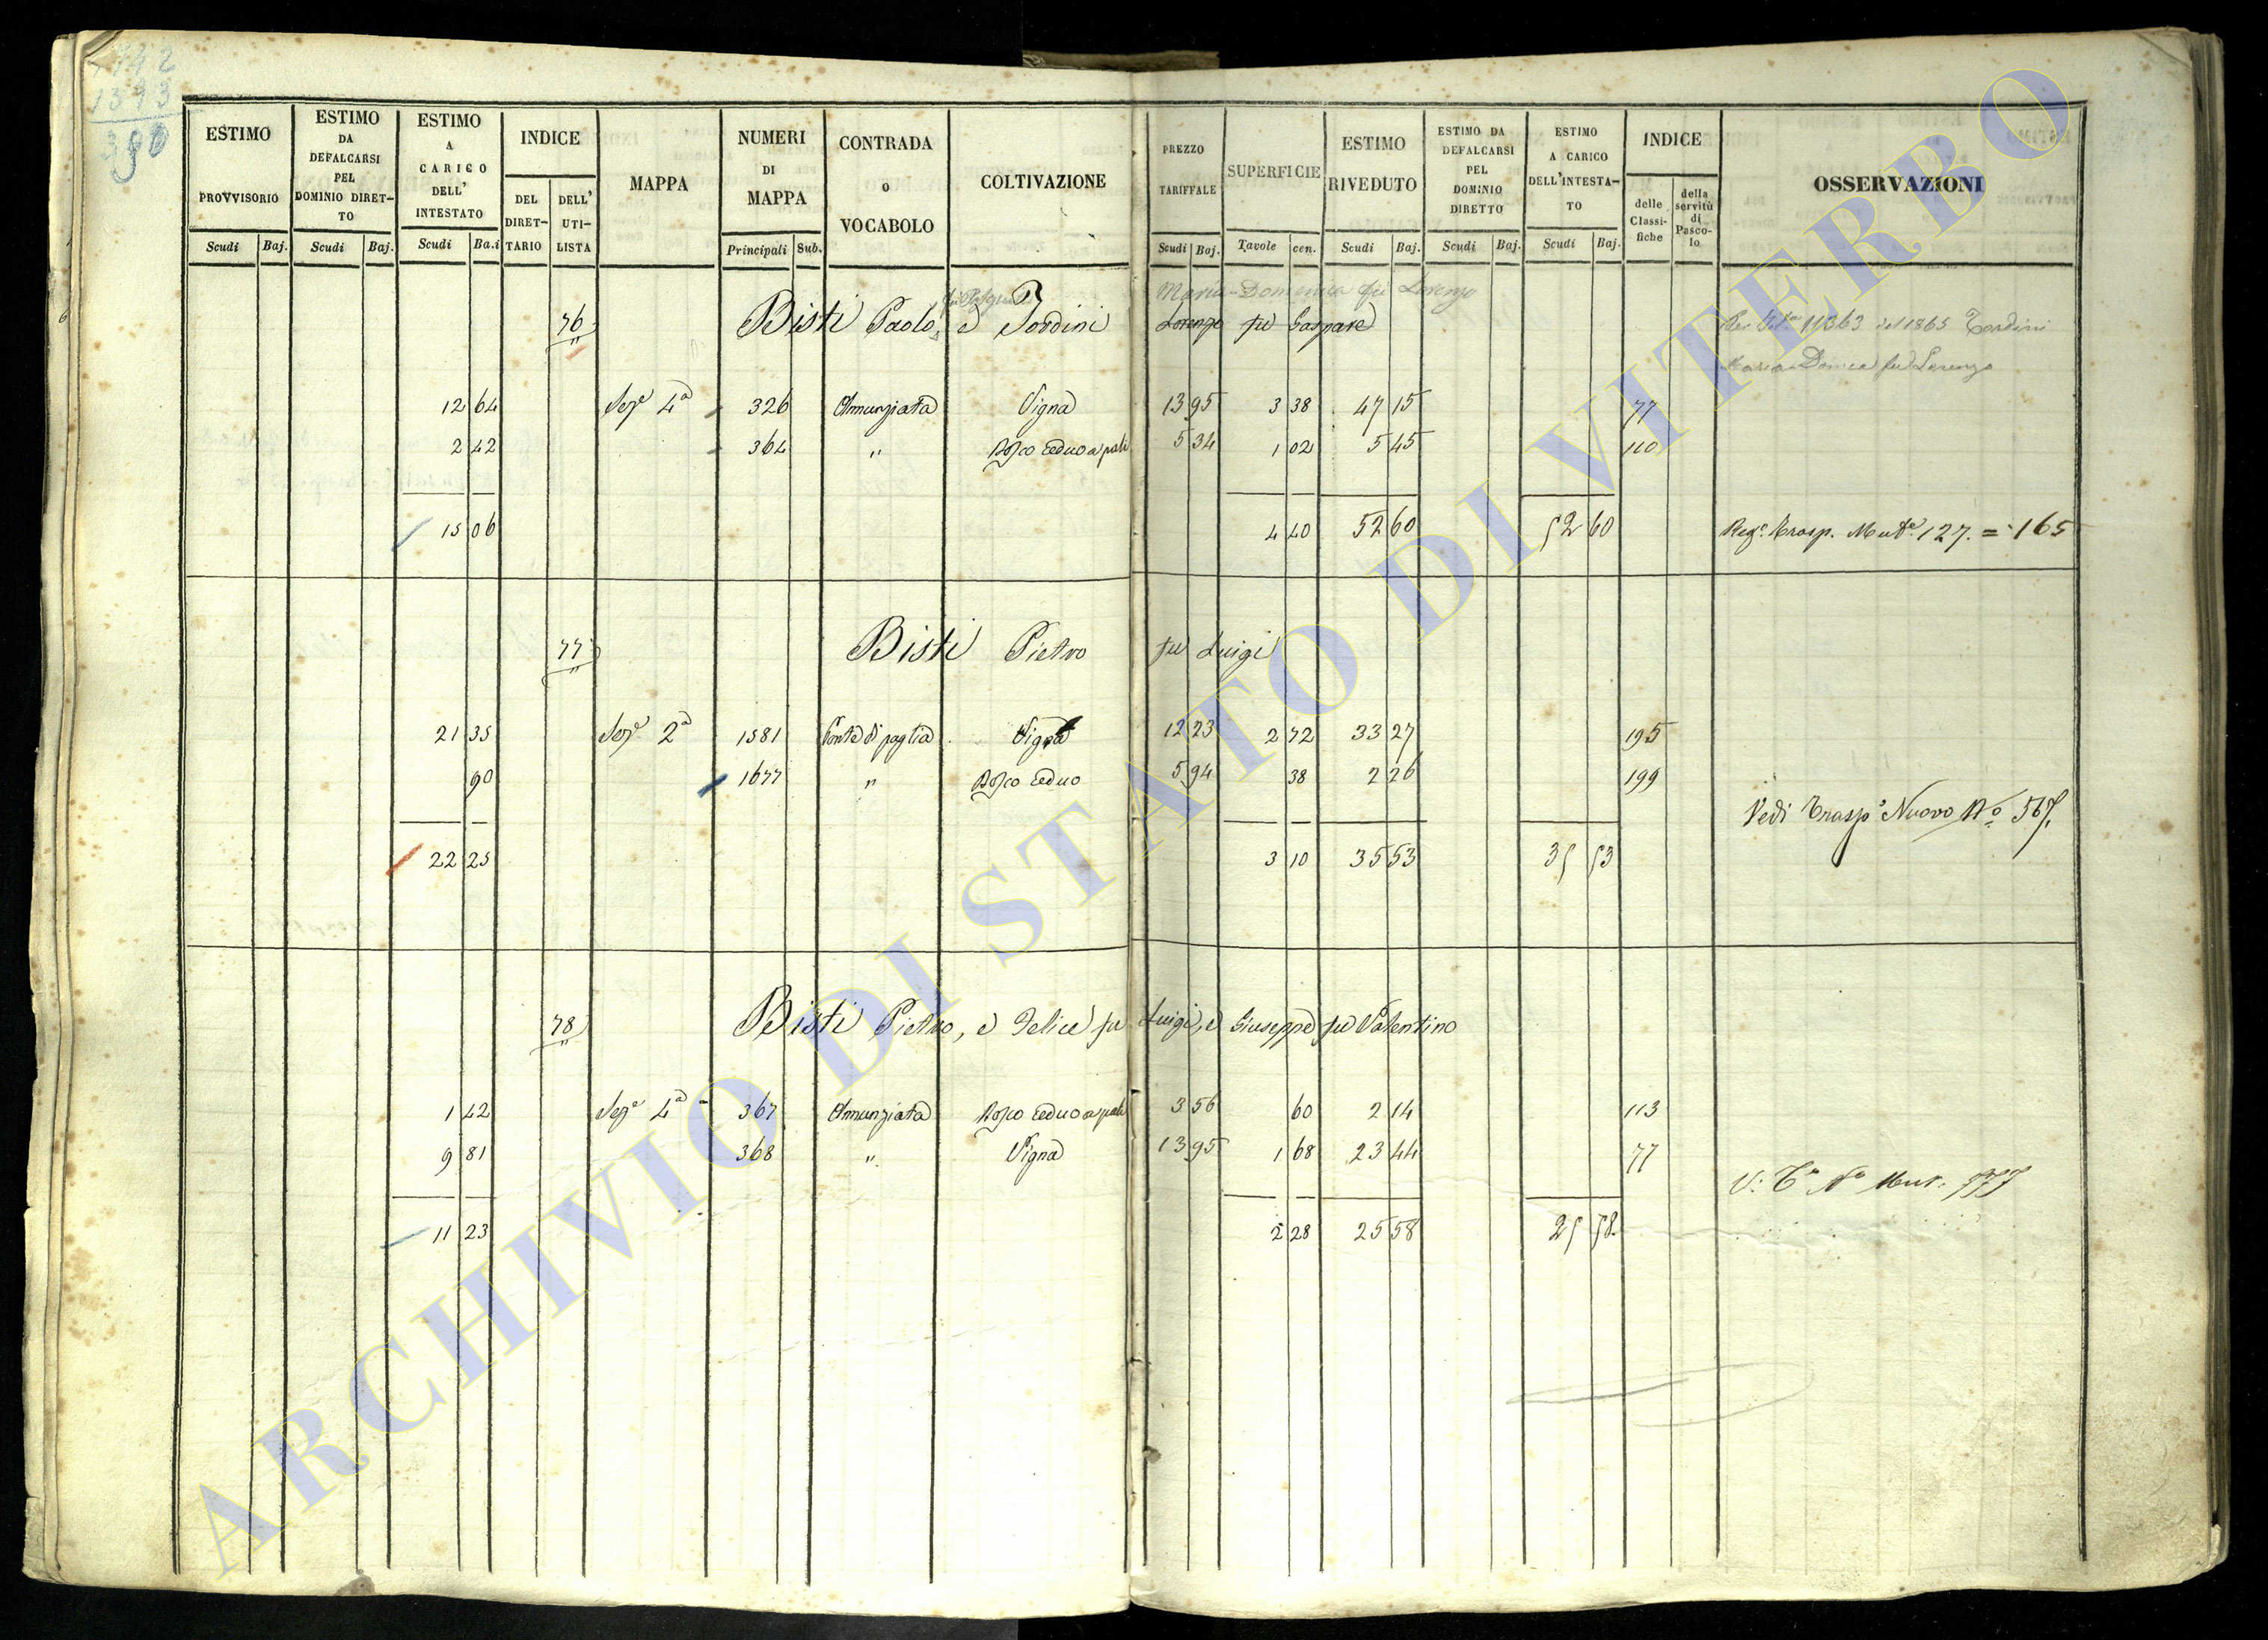 1393
390
ESTIMO PROVVISORIO
ESTIMO DA DEFALCARSI PEL DOMINIO DIRET-TO
ESTIMO A CARICO DELL' INTESTATO
INDICE
DEL DIRET-TARIO
DELL' UTI-LISTA
MAPPA
NUMERI DI MAPPA
CONTRADA o VOCABOLO
COLTIVAZIONE
PREZZO TARIFFALE
SUPERFICIE
ESTIMO RIVEDUTO
ESTIMO DA DEFALCARSI PEL DOMINIO DIRETTO
ESTIMO A CARICO DELL'INTESTA-TO
INDICE
delle Classi-fiche
della servitù di Pasco-lo
OSSERVAZIONI
Scudi Baj. Scudi Baj. Scudi Ba.i Principali Sub. Scudi Baj. Tavole cen. Scudi Baj. Scudi Baj. Scudi Baj.
Maria Domenica fu Lorenzo
76 Bisti Paolo, e Tordini Lorenzo fu Gaspare
11363 del 1865 Tordini
Maria Domca fu Lorenzo
12 64 Seze 4a 326 Annunziata Vigna 13 95 3 38 47 15 77
2 42 364 " Bosco Ceduo a pali 5 34 1 02 5 45 110
15 06 4 40 52 60 52 60 Rego. Trasp. Mute. 127. = 165
77 Bisti Pietro fu Luigi
21 35 Seze 2a 1581 Ponte di paglia Vigna 12 23 2 72 33 27 195
90 1677 " Bosco Ceduo 5 94 38 2 26 199
Vedi Traspo Nuovo No 567.
22 25 3 10 35 53 35 53
78 Bisti Pietro, e Felice fu Luigi, e Giuseppe fu Valentino
1 42 Seze 4a 367 Annunziata Bosco Ceduo a pali 3 56 60 2 14 113
9 81 368 " Vigna 13 95 1 68 23 44 77
V: To No Mut:
11 23 2 28 25 58 25 58.
ARCHIVIO DI STATO DI VITERBO